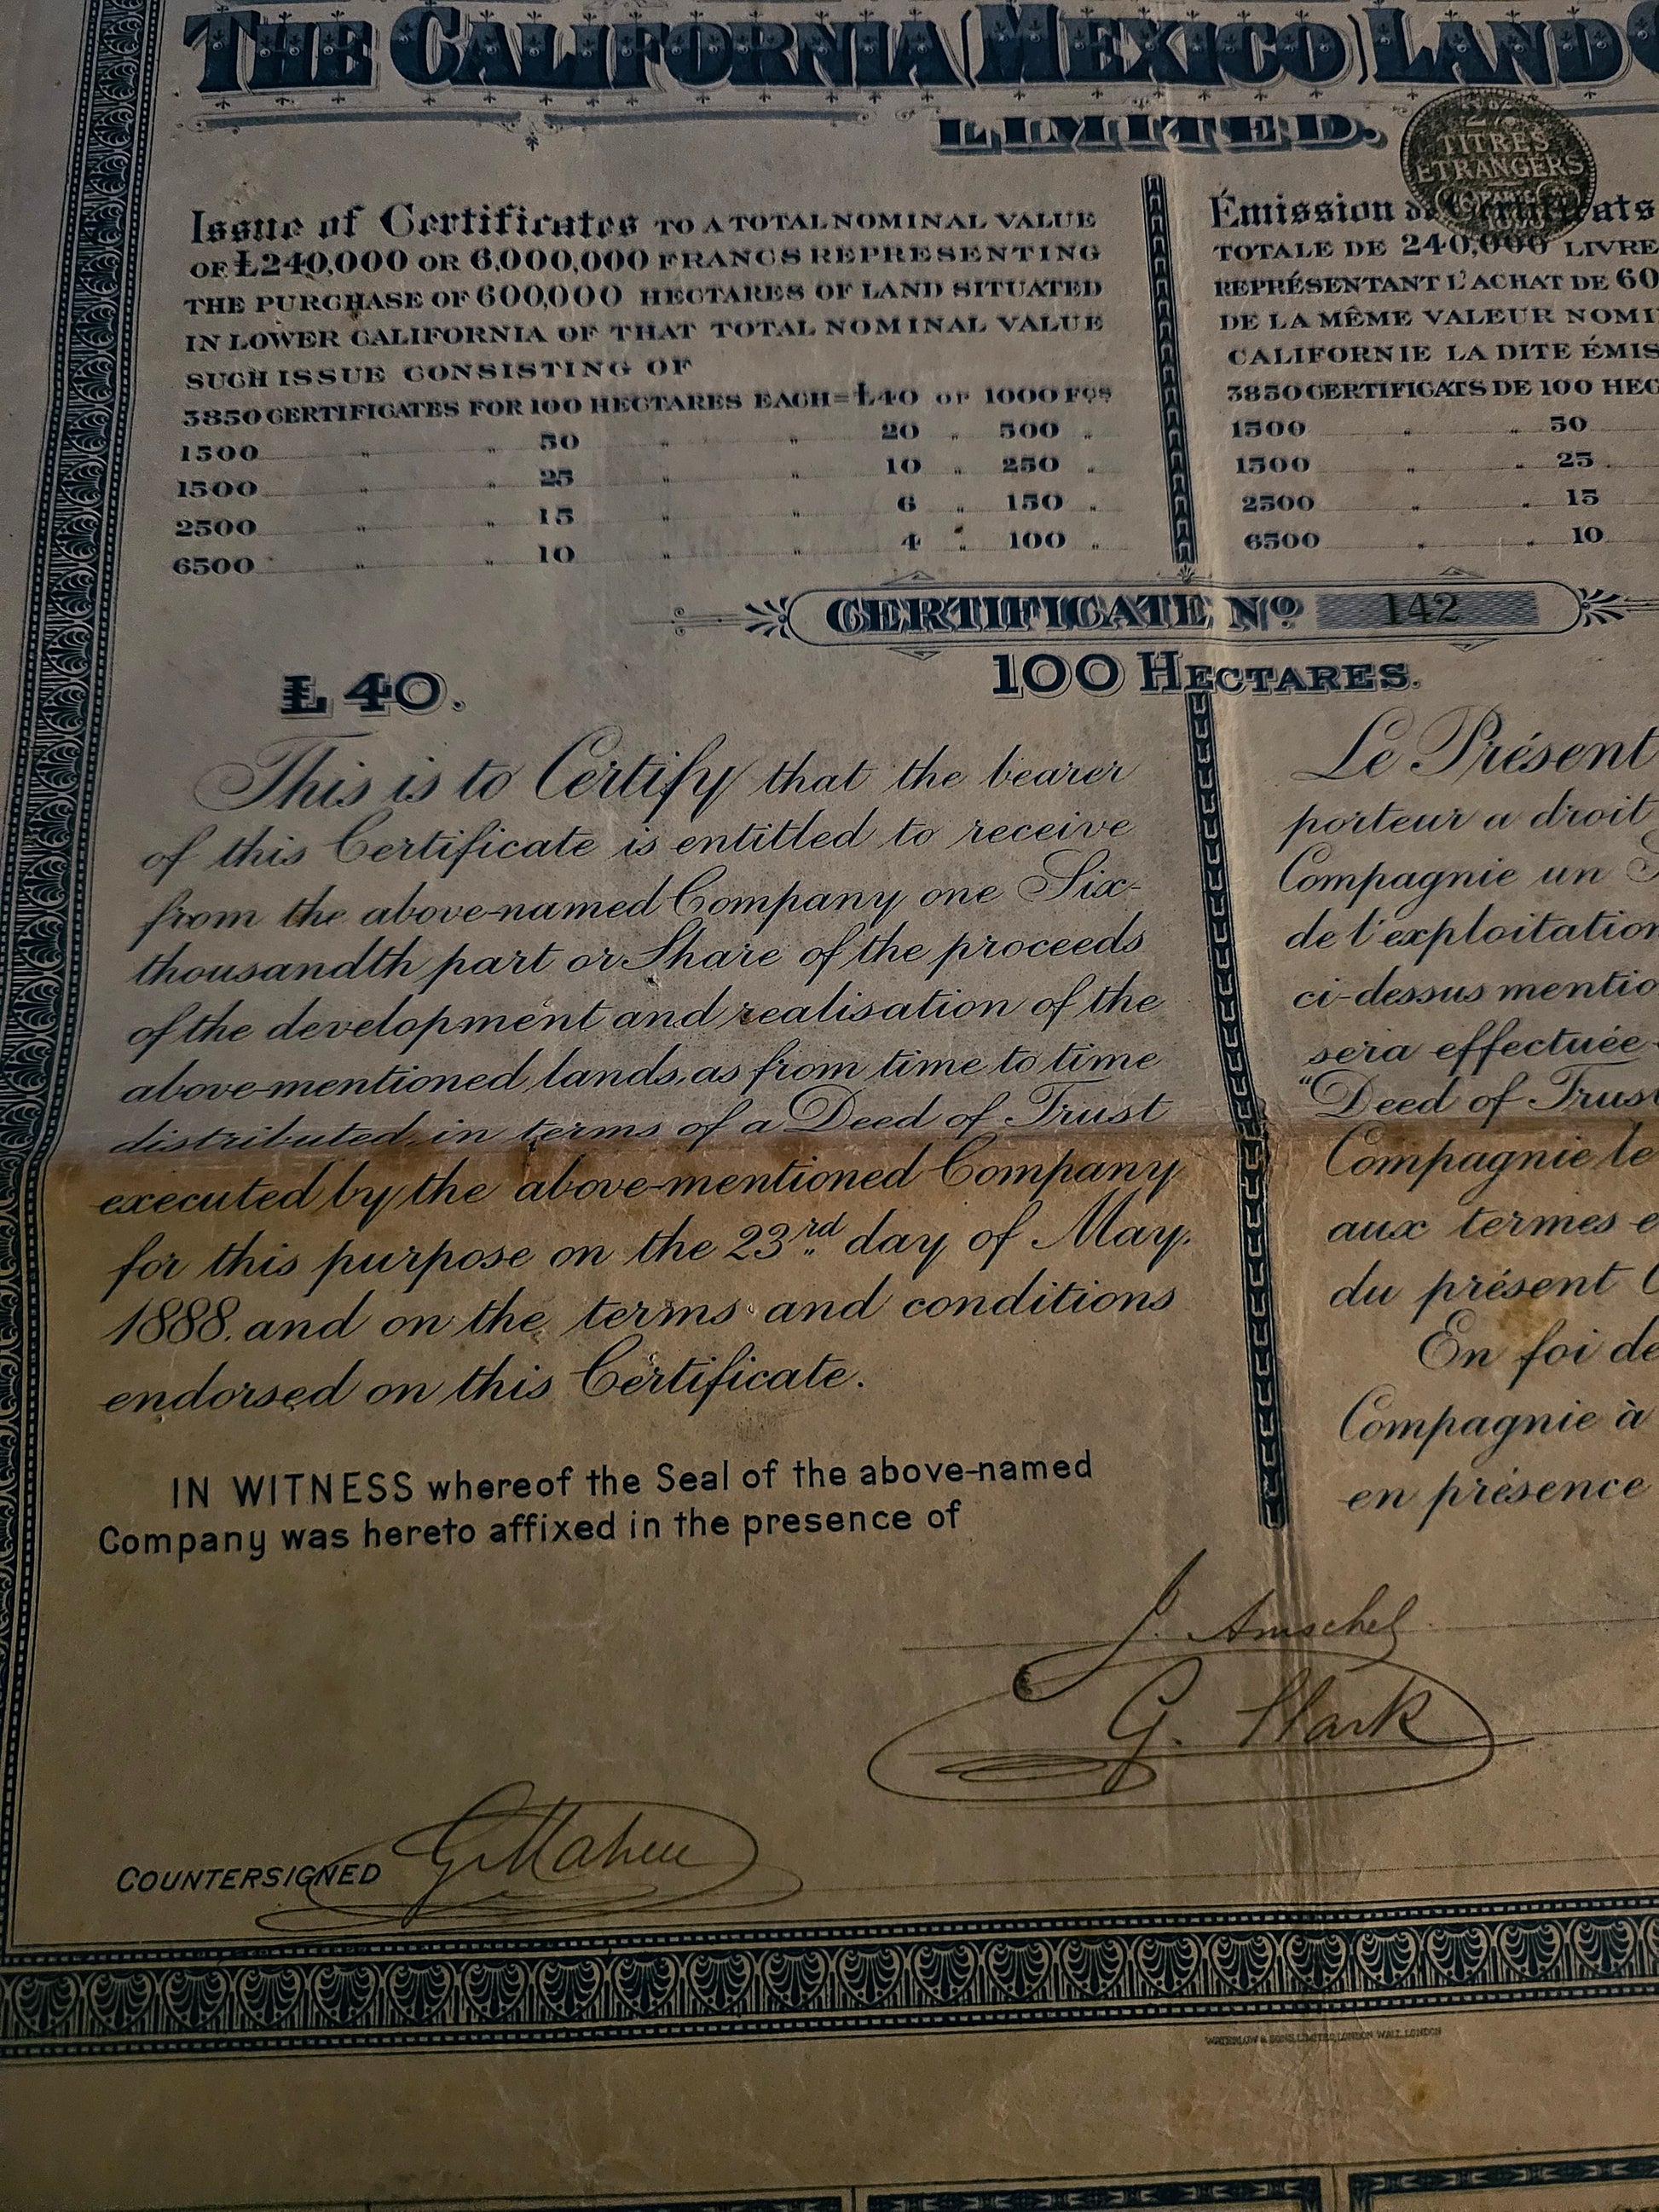 THE CALIFORNIA (MEXICO) LAND
LIMITED.
2%
TITRES
ETRANGERS
Issue of Certificates TO A TOTAL NOMINAL VALUE
OF £240,000 OR 6,000,000 FRANCS REPRESENTING
THE PURCHASE OF 600,000 HECTARES OF LAND SITUATED
IN LOWER CALIFORNIA OF THAT TOTAL NOMINAL VALUE
SUCH ISSUE CONSISTING OF
3850 CERTIFICATES FOR 100 HECTARES EACH = £40 or 1000 FCS
1500 " " 50 " " 20 " 500 "
1500 " " 25 " " 10 " 250 "
2500 " " 15 " " 6 " 150 "
6500 " " 10 " " 4 " 100 "
Émission de Certificats
TOTALE DE 240,000 LIVRE
REPRÉSENTANT L'ACHAT DE 60
DE LA MÊME VALEUR NOMI
CALIFORNIE LA DITE ÉMIS
3850 CERTIFICATS DE 100 HEC
1500 " " 50
1500 " " 25
2500 " " 15
6500 " " 10
CERTIFICATE No 142
£40.
100 HECTARES.
This is to Certify that the bearer
of this Certificate is entitled to receive
from the above-named Company one Six-
thousandth part or Share of the proceeds
of the development and realisation of the
above-mentioned lands, as from time to time
distributed in terms of a Deed of Trust
executed by the above-mentioned Company
for this purpose on the 23rd day of May.
1888. and on the terms and conditions
endorsed on this Certificate.
Le Présent
porteur a droit
Compagnie un
de l'exploitation
ci-dessus mentio
sera effectuée
"Deed of Trust
Compagnie le
aux termes e
du présent C
En foi de
Compagnie à
en présence
IN WITNESS whereof the Seal of the above-named
Company was hereto affixed in the presence of
J. Amschel
G. Stark
COUNTERSIGNED G. Maheu
WATERLOW & SONS, LIMITED, LONDON WALL, LONDON